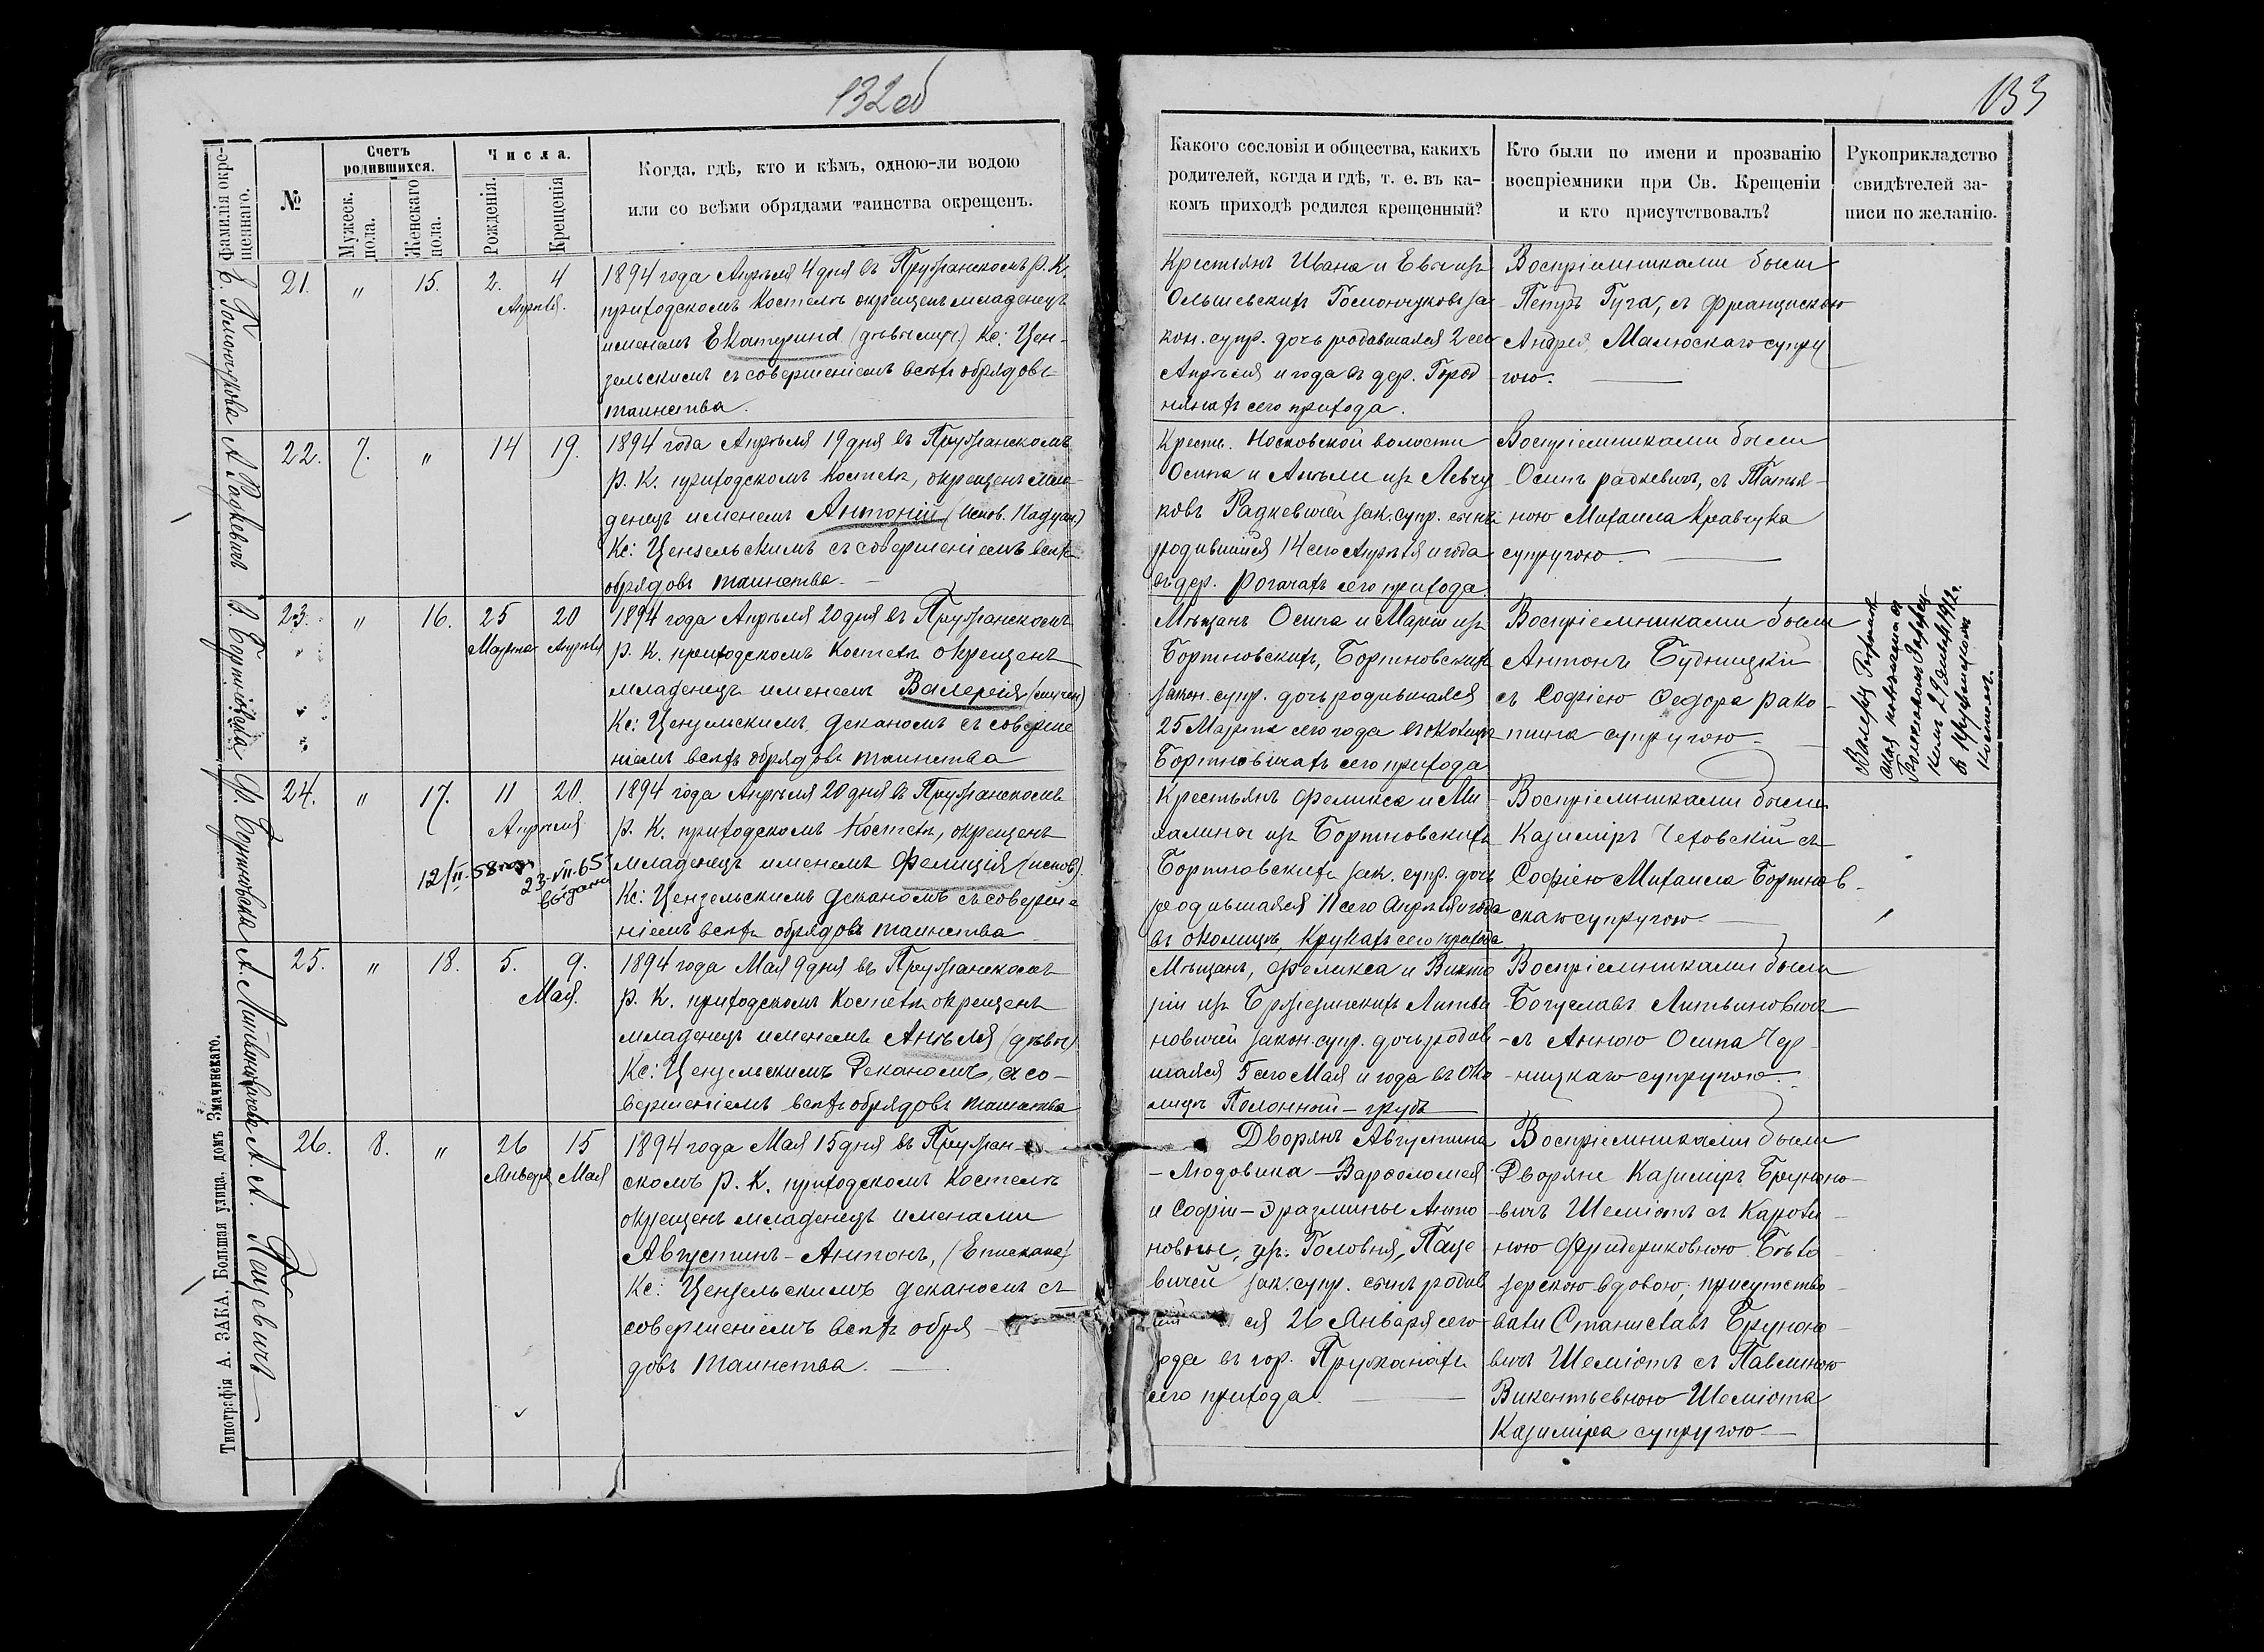 132 об
133
фамилія окре-
щеннаго.
№
Счетъ
родившихся.
Мужеск.
пола.
Женскаго
пола.
Числа.
Рожденія.
Крещенія
Когда, гдѣ, кто и кѣмъ, одною-ли водою
или со всѣми обрядами таинства окрещенъ.
Какого сословія и общества, какихъ
родителей, когда и гдѣ, т. е. въ ка-
комъ приходѣ родился крещенный?
Кто были по имени и прозванію
воспріемники при Св. Крещеніи
и кто присутствовалъ?
Рукоприкладство
свидѣтелей за-
писи по желанію.
Е. Гомончукова
21. " 15. 2. 4
Апрѣля.
1894 года Апрѣля 4 дня въ Пружанскомъ Р. К.
приходскомъ Костелѣ окрещенъ младенецъ
именемъ Екатерина (дѣвы муч.) Кс: Цен-
зельскимъ съ совершеніемъ всѣхъ обрядовъ
таинства.
Крестьянъ Ивана и Евы изъ
Ольшевскихъ Гомончуковъ за-
кон. супр. дочь родившаяся 2 сего
Апрѣля и года въ дер. Город
нянахъ сего прихода.
Воспріемниками были
Петръ Гуча, съ Францискою
Андрея Малюскаго супру
гою.
А Радкевичъ
22. 7. " 14 19.
1894 года Апрѣля 19 дня въ Пружанскомъ
Р. К. приходскомъ Костелѣ, окрещенъ мла-
денецъ именемъ Антоній (Испов. Падуан.)
Кс: Цензельскимъ съ совершеніемъ всѣхъ
обрядовъ таинства.
Крестн. Носковской волости
Осипа и Анѣли изъ Левчу
ковъ Радкевичей зак. супр. сынъ
родившійся 14 сего Апрѣля и года
въ дер. Рогачахъ сего прихода.
Воспріемниками были
Осипъ Радкевичъ, съ Татья-
ною Михаила Кравчука
супругою.
В. Бортновска
23. " 16. 25 20
Марта Апрѣля
1894 года Апрѣля 20 дня въ Пружанскомъ
Р. К. приходскомъ Костелѣ окрещенъ
младенецъ именемъ Валерія (мучен)
Кс: Цензельскимъ Деканомъ съ соверше
ніемъ всѣхъ обрядовъ таинства
Мѣщанъ Осипа и Маріи изъ
Бортновскихъ, Бортновскихъ
закон. супр. дочь родившаяся
25 Марта сего года въ околицѣ
Бортновичахъ сего прихода
Воспріемниками были
Антонъ Будницкій
съ Софіею Ѳедора Рако-
тина супругою.
1912 г.
Ф. Бортновска
24. " 17. 11 20.
Апрѣля
12/II-58
23-VII-65
выдана
1894 года Апрѣля 20 дня въ Пружанскомъ
Р. К. приходскомъ Костелѣ, окрещенъ
младенецъ именемъ Фелиція (испов.)
Кс: Цензельскимъ Деканомъ съ соверше
ніемъ всѣхъ обрядовъ таинства
Крестьянъ Феликса и Ми-
халины изъ Бортновскихъ
Бортновскихъ зак. супр. дочь
родившаяся 11 сего Апрѣля и года
въ околицѣ Крукахъ сего прихода
Воспріемниками были
Казиміръ Чеховскій съ
Софіею Михаила Бортнов-
скаго супругою
А Литвиновичева
25. " 18. 5. 9.
Мая.
1894 года Мая 9 дня въ Пружанскомъ
Р. К. приходскомъ Костелѣ окрещенъ
младенецъ именемъ Анѣля (дѣвы)
Кс: Цензельскимъ Деканомъ, съ со-
вершеніемъ всѣхъ обрядовъ таинства
Мѣщанъ, Феликса и Викто
ріи изъ Бржезинскихъ Литви
новичей закон. супр. дочь родив
шаяся 5 сего Мая и года въ око
лицѣ
Воспріемниками были
Богуславъ Литвиновичъ
съ Анною Осипа Чер-
ницкаго супругою.
А. А. Пацевичъ
26. 8. " 26 15
Января Мая
1894 года Мая 15 дня въ Пружан-
скомъ Р. К. приходскомъ Костелѣ
окрещенъ младенецъ именами
Августинъ-Антонъ, (Епископа)
Кс: Цензельскимъ Деканомъ съ
совершеніемъ всѣхъ обря-
довъ таинства.
Дворянъ Августина
-Людовика-Варѳоломея
и Софіи-Эразмины Анто
новны, ур. Головня, Паце
вичей зак. супр. сынъ родив
ся 26 Января сего
года въ гор. Пружанахъ
сего прихода.
Воспріемниками были
Дворяне Казиміръ Бруноно-
вичъ Шеміотъ съ Кароли-
ною Фридериковною Бѣло-
зерскою вдовою, присутство-
вали Станиславъ Бруноно-
вичъ Шеміотъ съ Павлиною
Викентьевною Шеміота
Казиміра супругою
Типографія А. ЗАКА, Большая улица, домъ Значинскаго.